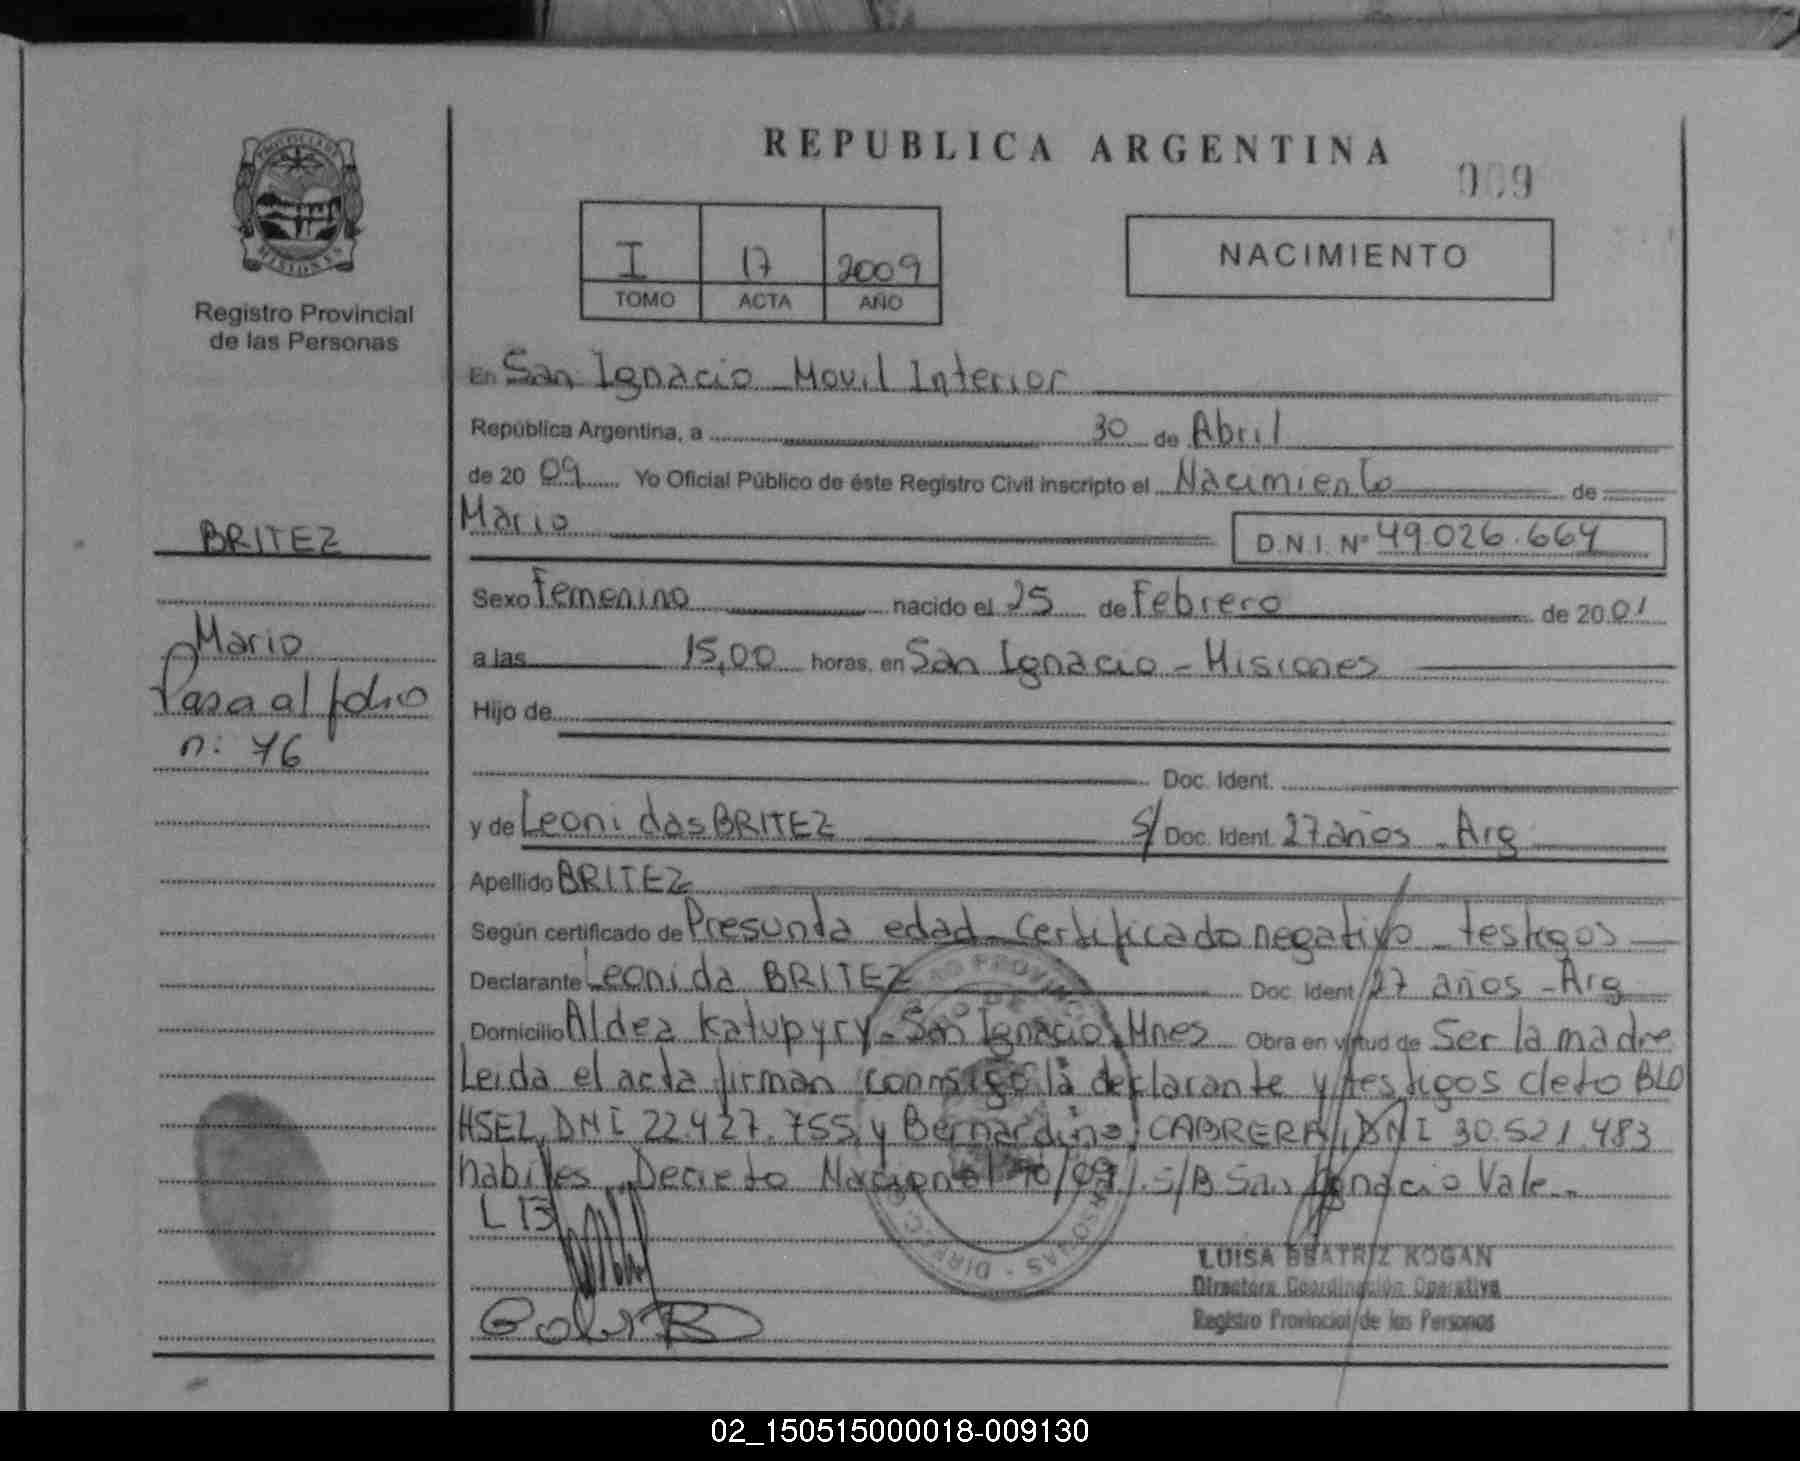 REPUBLICA ARGENTINA
009
PROVINCIA DE
MISIONES
Registro Provincial
de las Personas
I 17 2009
TOMO ACTA AÑO
NACIMIENTO
En San Ignacio Movil Interior
República Argentina, a 30 de Abril
de 20 09 Yo Oficial Público de éste Registro Civil inscripto el Nacimiento de
Mario D.N.I. Nº 49.026.664
BRITEZ
Sexo Femenino nacido el 25 de Febrero de 20 01
Mario
a las 15,00 horas, en San Ignacio - Misiones
Pasa al folio
n: 76
Hijo de
Doc. Ident.
y de Leonidas BRITEZ S/ Doc. Ident. 27 años - Arg
Apellido BRITEZ
Según certificado de Presunta edad - Certificado negativo - testigos
Declarante Leonida BRITEZ Doc. Ident 27 años - Arg
Domicilio Aldea Katupyry - San Ignacio, Mnes Obra en virtud de Ser la madre
Leida el acta firman conmigo la declarante y testigos cleto
DNI 22.427.755 y Bernardino CABRERA, DNI 30.521.483
habiles - Decreto Nacional 90/09. S/B San Ignacio Vale -
L B
LUISA BEATRIZ KOGAN
Directora Coordinación Operativa
Registro Provincial de las Personas
02_150515000018-009130